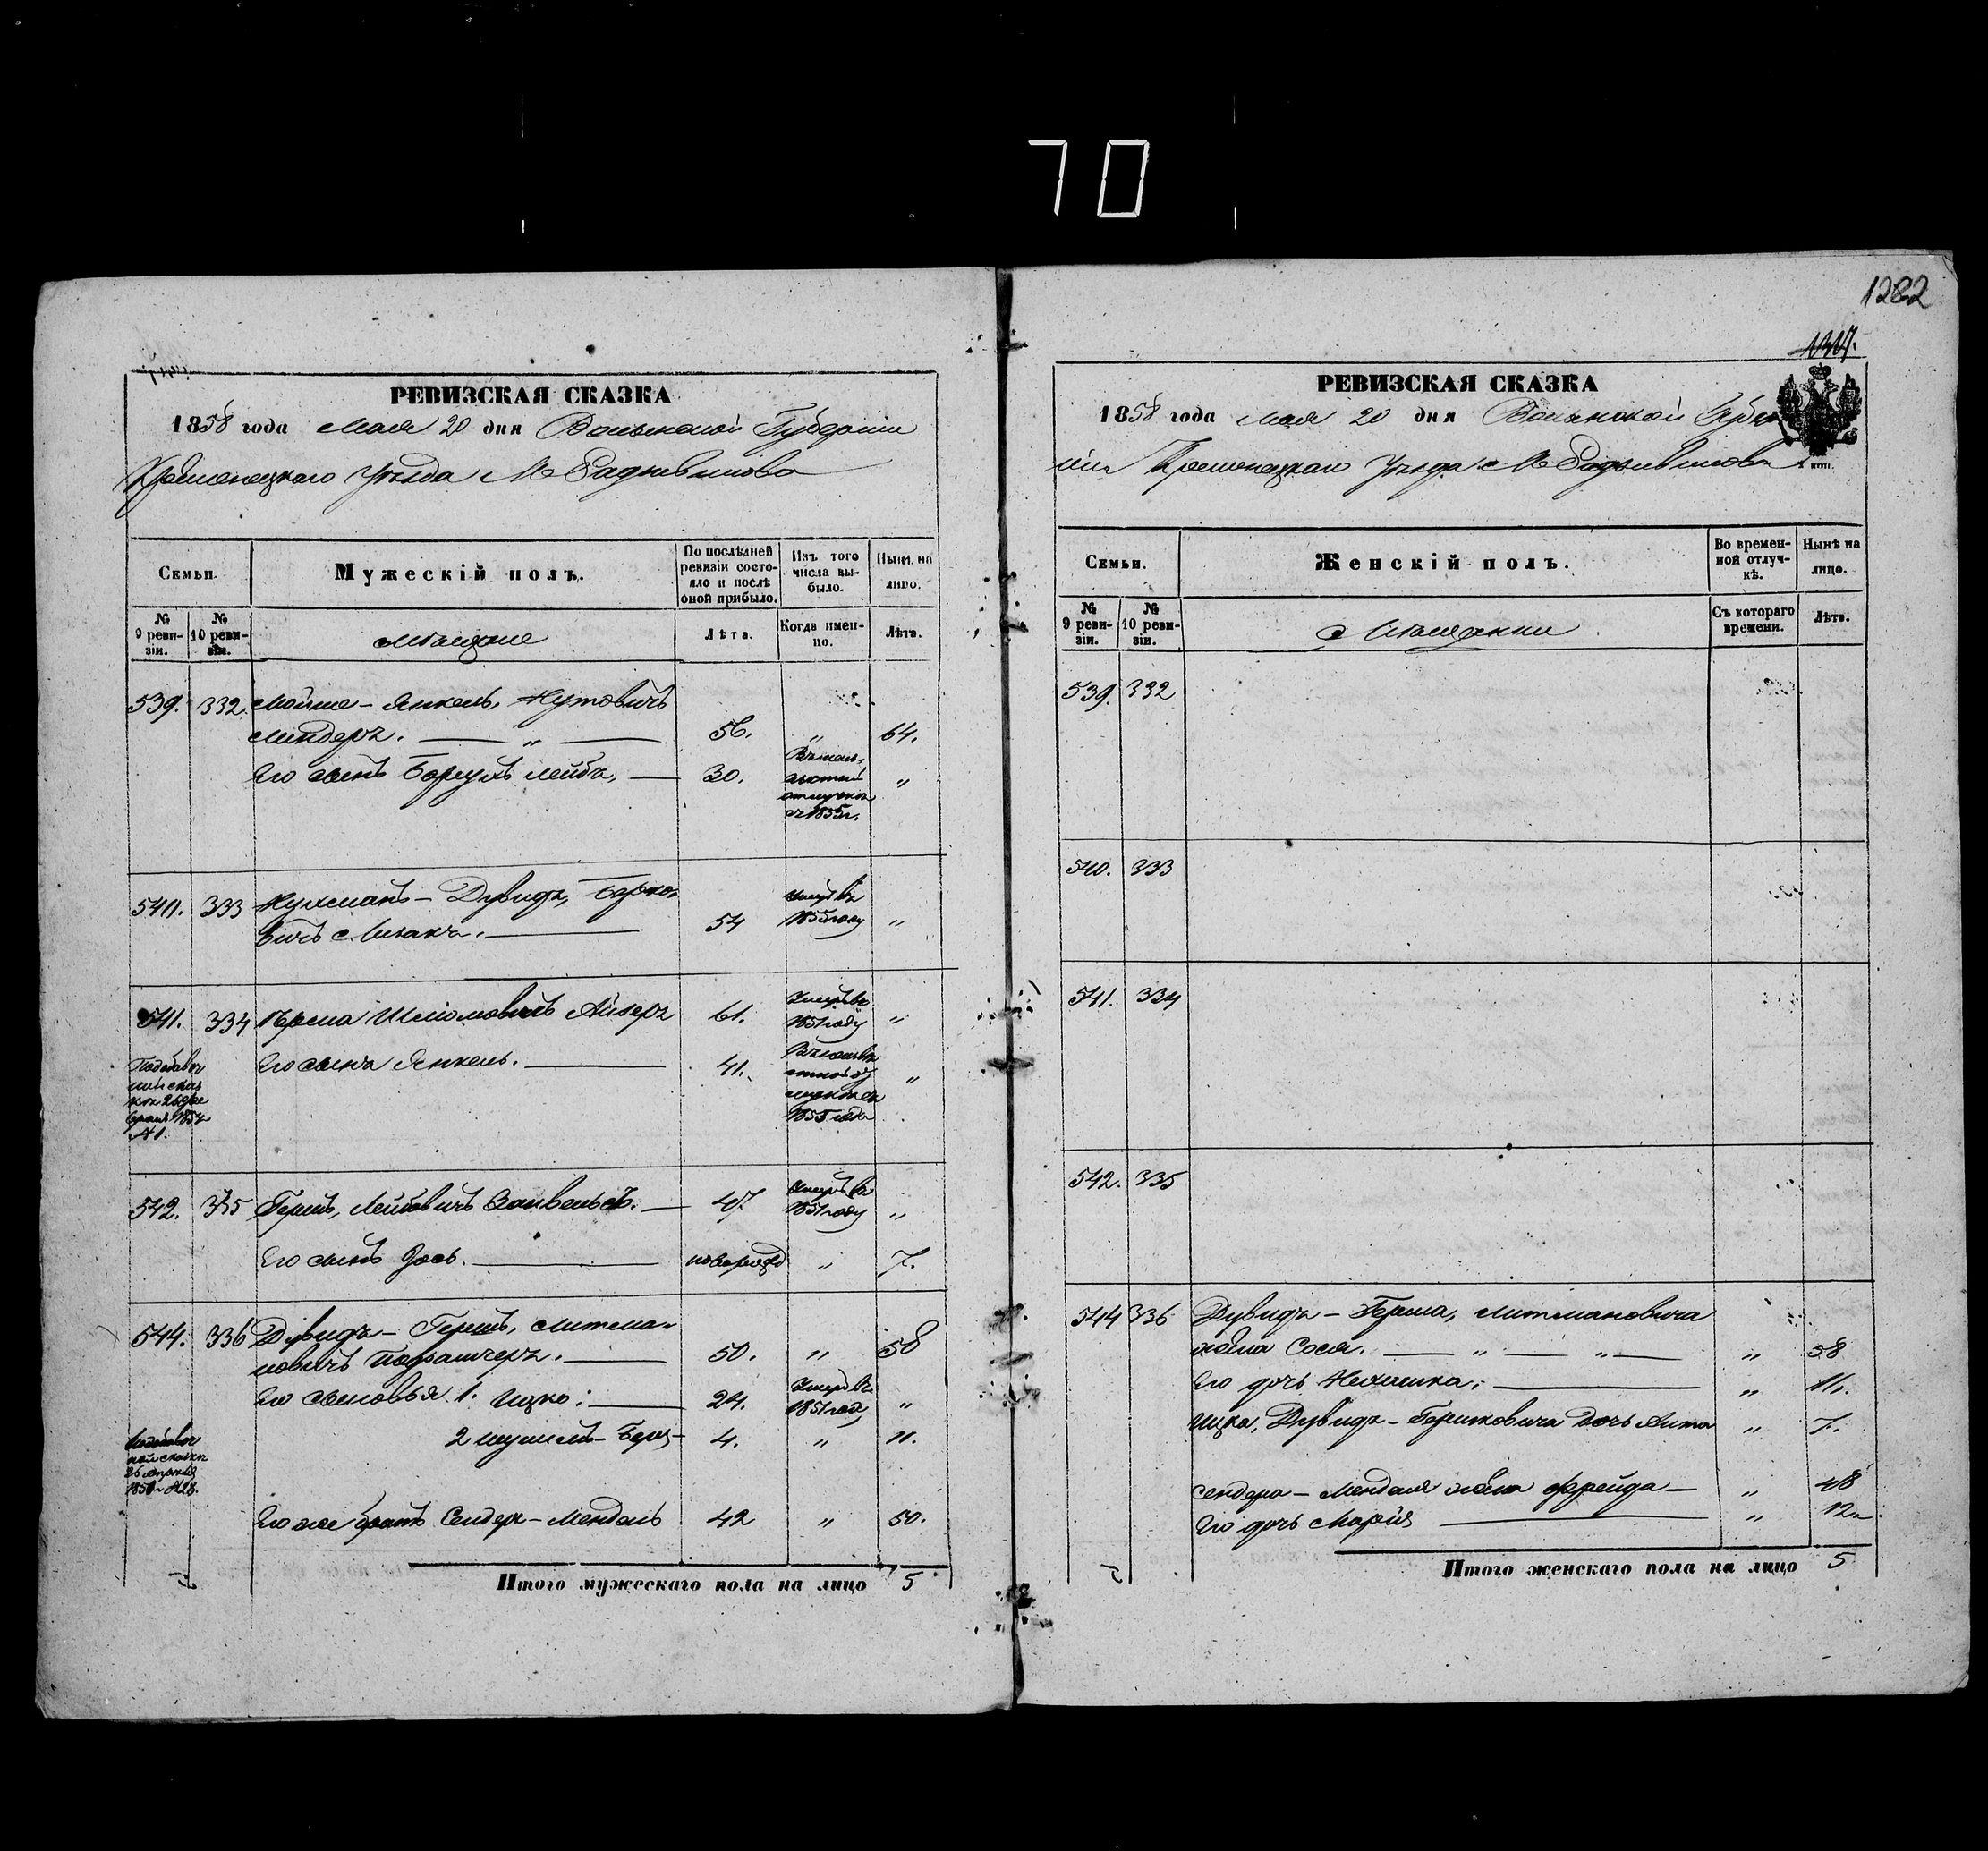 70
1282
1317.
РЕВИЗСКАЯ СКАЗКА
1858 года Мая 20 дня Волынской Губернии
Кременецкаго Уѣзда М Радзивилова
Семьи.
Мужескій полъ.
По послѣдней ревизіи состояло и послѣ оной прибыло.
Изъ того числа выбыло.
Нынѣ на лицо.
№ 9 ревизіи.
№ 10 ревизіи.
Мѣщане
Лѣта.
Когда именно.
Лѣта.
539. 332. Мойше - Янкель, Нутовичъ
Линдеръ. — „ — 56. „ 64.
Его сынъ Борухъ Лейба, — 30. отлучкѣ съ 1855г. „
540. 333 Нухманъ - Дувидъ, Берко-
вичъ — 54 Умеръ въ 1855 году „
541. 334 Шліомовичъ Айзеръ 61. Умеръ въ 1851 году „
Его сынъ Янкель. — 41. 1855 года „
542. 335 Гершъ, Лейбовичъ — 47 Умеръ въ 1851 году „
Его сынъ Зось. — новорожд „ 7.
544. 336 Дувидъ - Гершъ, Литма-
новичъ — 50. „ 58
Его сыновья 1. Ицко: — 24. Умеръ въ 1851 году „
2 Беръ - 4. „ 11.
Его же братъ Сендеръ - Мендель 42 „ 50.
Итого мужескаго пола на лицо 5
РЕВИЗСКАЯ СКАЗКА
1858 года Мая 20 дня Волынской Губер
ніи Кременецкаго Уѣзда М Радзивилова
коп.
Семьи.
Женскій полъ.
Во временной отлучкѣ.
Нынѣ на лицо.
№ 9 ревизіи.
№ 10 ревизіи.
Мѣщанки
Съ котораго времени.
Лѣта.
539. 332
540. 333
541. 334
542. 335
544 336 Дувидъ - Герша, Литмановича
жена Сося. — „ — „ — „ 58
Его дочь Нехамка; — „ 11.
Ицка, Дувидъ - Гершковича дочь „ 7.
Сендера - Менделя жена Фрейда — „ 48
Его дочь Марія — „ 12.
Итого женскаго пола на лицо 5